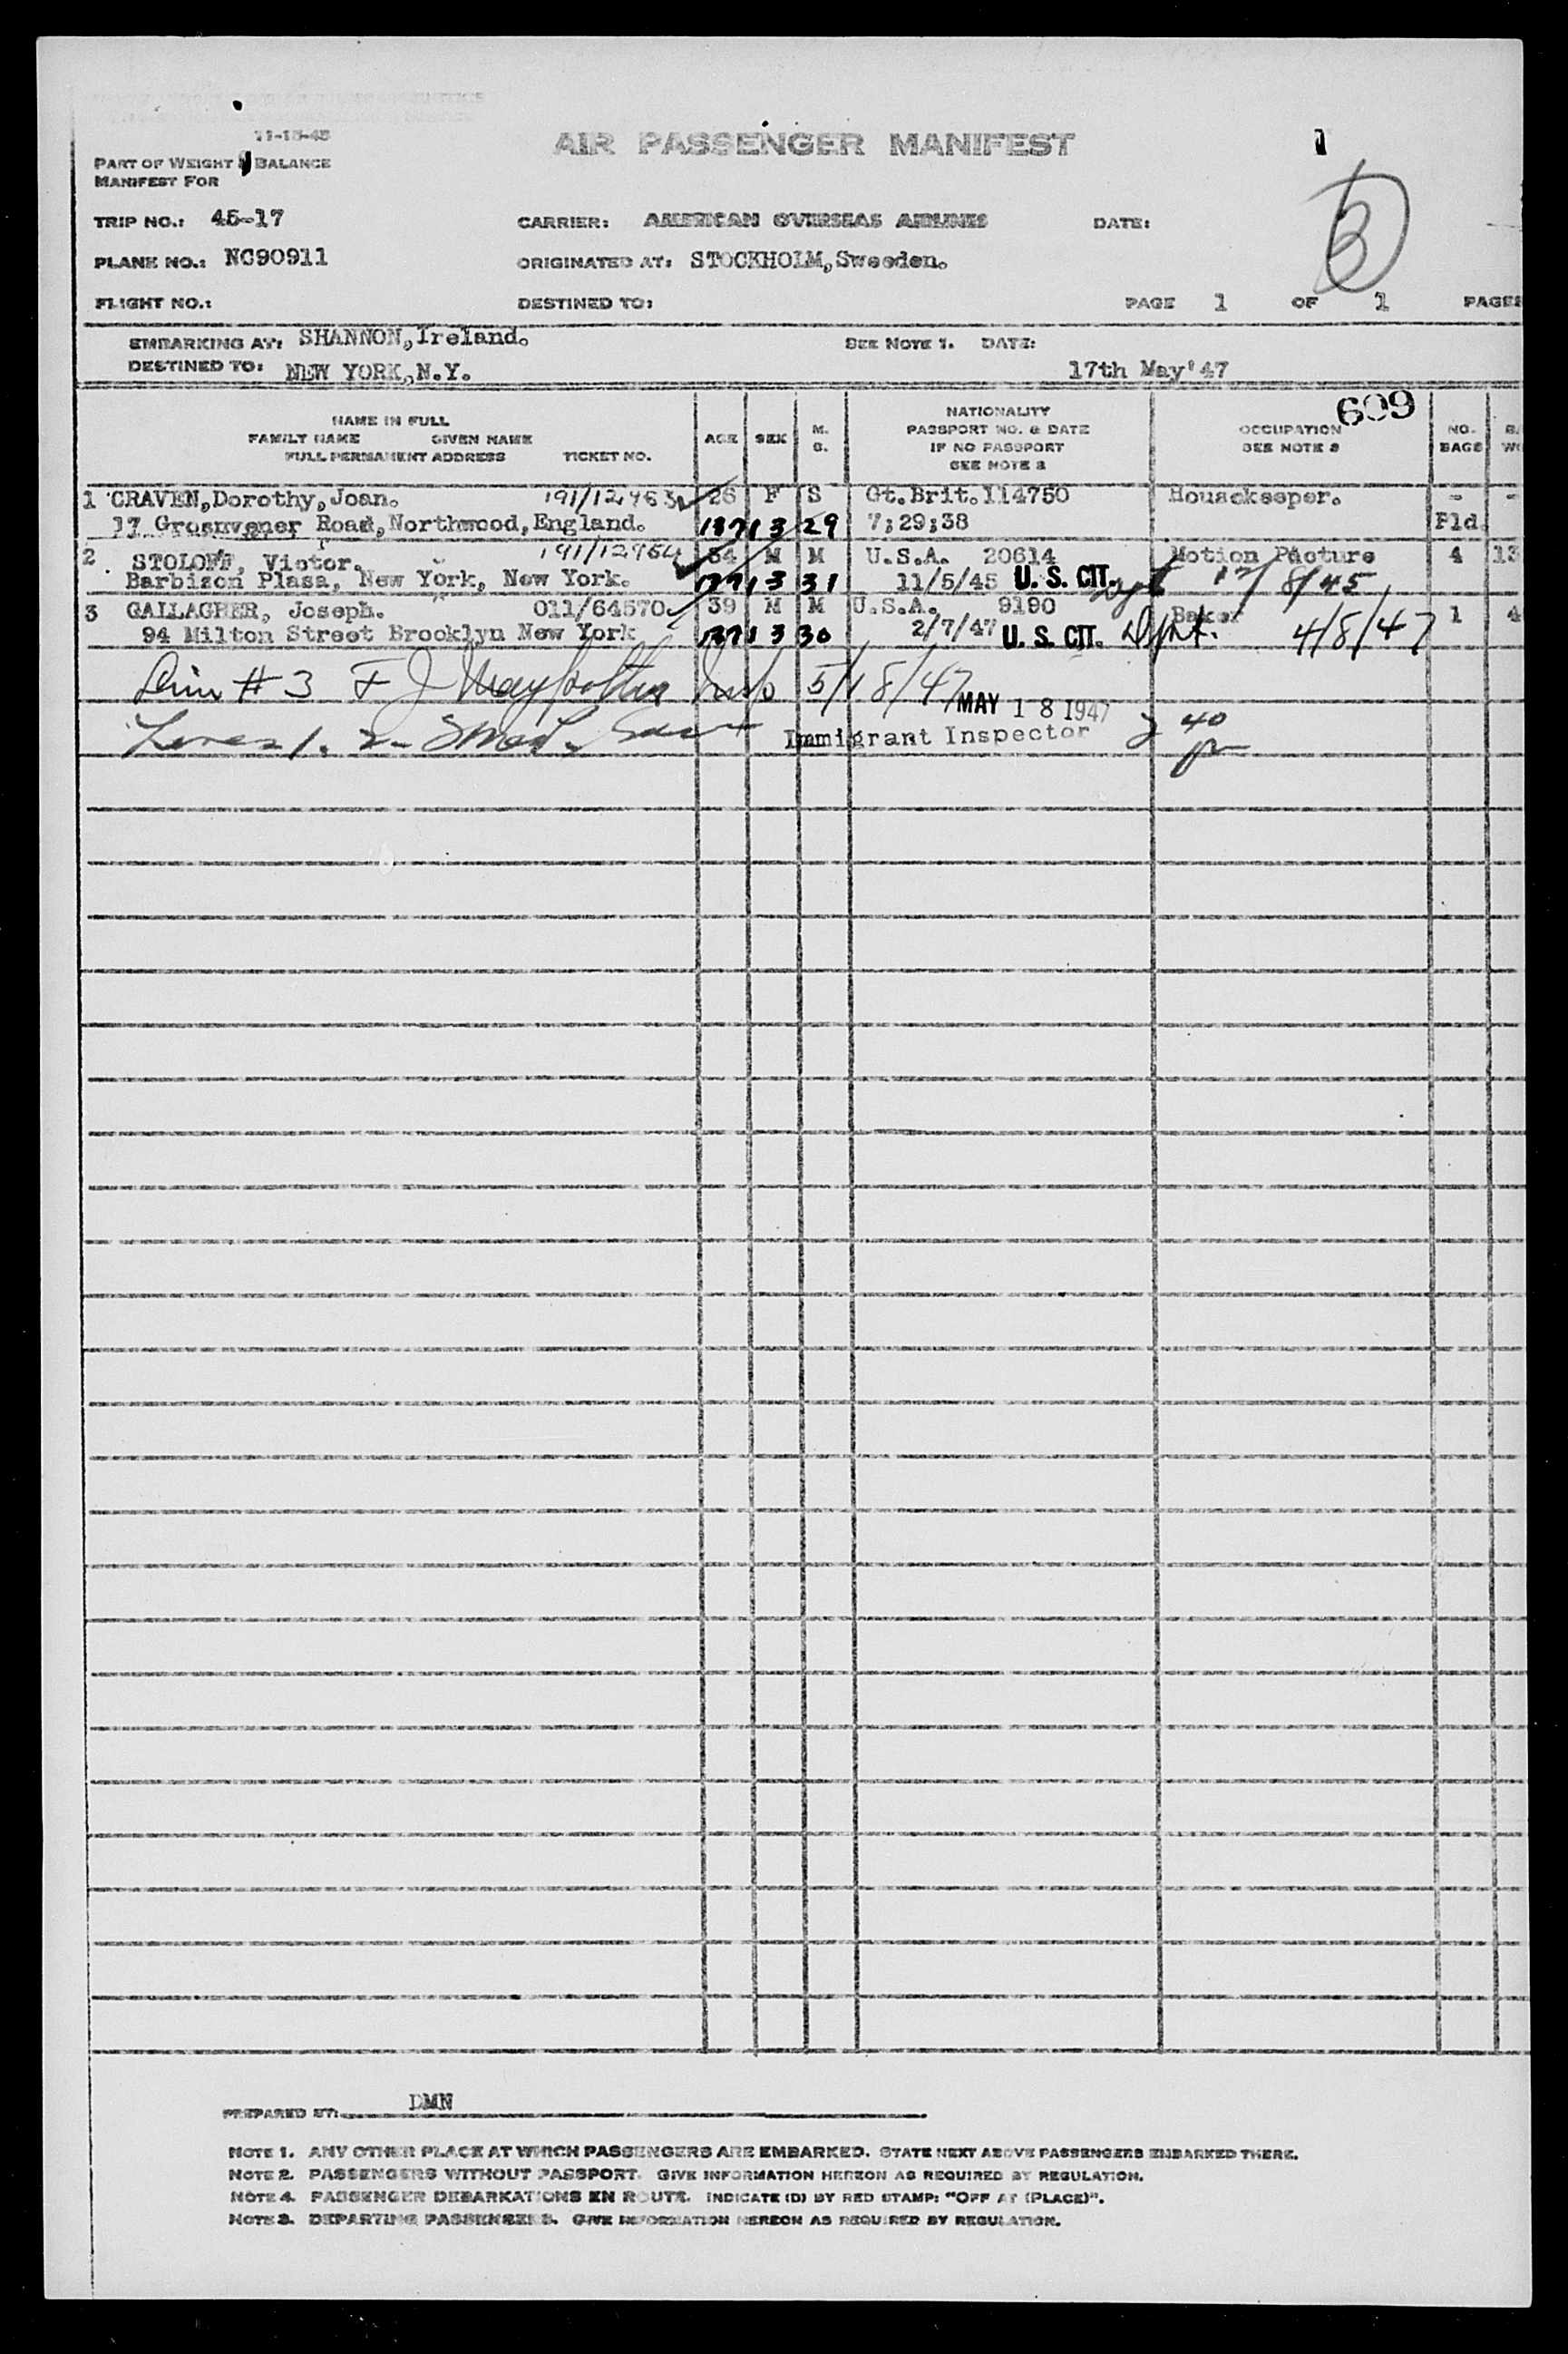 11-15-45
AIR PASSENGER MANIFEST
1
PART OF WEIGHT & BALANCE
MANIFEST FOR
TRIP NO.: 45-17 CARRIER: AMERICAN OVERSEAS AIRLINES DATE:
3
PLANE NO.: NC90911 ORIGINATED AT: STOCKHOLM,Sweeden.
FLIGHT NO.: DESTINED TO: PAGE 1 OF 1 PAGES
EMBARKING AT: SHANNON,Ireland. SEE NOTE 1. DATE:
DESTINED TO: NEW YORK,N.Y. 17th May'47
609
NAME IN FULL
FAMILY NAME GIVEN NAME
FULL PERMANENT ADDRESS TICKET NO.
AGE SEX M. S.
NATIONALITY
PASSPORT NO. & DATE
IF NO PASSPORT
SEE NOTE 2
OCCUPATION
SEE NOTE 3
NO. BAGS
1 CRAVEN,Dorothy,Joan. 191/12963 26 F S Gt.Brit.114750 Housekeeper. - -
17 Grosnvener Road,Northwood,England. 3 29 7;29;38 Pld.
2. STOLOFF, Victor. 191/12964 34 M M U.S.A. 20614 Motion Picture 4 13
Barbizon Plasa, New York, New York. 3 31 11/5/45 U. S. CIT. Dpt 8/45
3 GALLAGHER, Joseph. 011/64570 39 M M U.S.A. 9190 Baker 1 4
94 Milton Street Brooklyn New York 3 30 2/7/47 U. S. CIT. Dpt. 4/8/47
# 3 F J 5/18/47
MAY 18 1947
Lines 1. 2- Immigrant Inspector 2 40
PREPARED BY: DMN
NOTE 1. ANY OTHER PLACE AT WHICH PASSENGERS ARE EMBARKED. STATE NEXT ABOVE PASSENGERS EMBARKED THERE.
NOTE 2. PASSENGERS WITHOUT PASSPORT. GIVE INFORMATION HEREON AS REQUIRED BY REGULATION.
NOTE 4. PASSENGER DEBARKATIONS EN ROUTE. INDICATE (D) BY RED STAMP: "OFF AT (PLACE)".
NOTE 3. DEPARTING PASSENGERS. GIVE INFORMATION HEREON AS REQUIRED BY REGULATION.